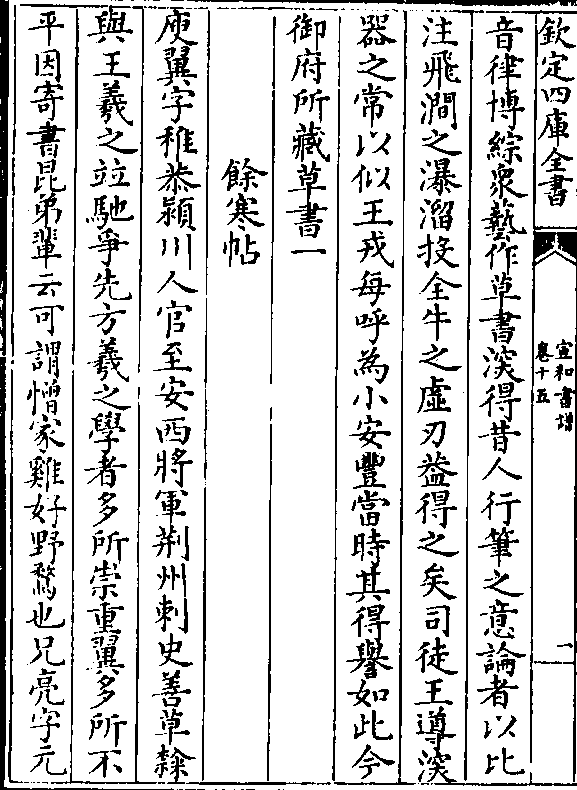 欽定四庫全書
宣和書譜
卷十五
一
音律博綜衆藝作草書深得昔人行筆之意論者以比
注飛澗之瀑溜投全牛之虛刃葢得之矣司徒王導深
器之常以似王戎每呼為小安豐當時其得譽如此今
御府所藏草書一
餘寒帖
庾翼字稚恭潁川人官至安西將軍荆州刺史善草隸
與王羲之竝馳爭先方羲之學者多所崇重翼多所不
平因寄書昆弟輩云可謂憎家雞好野鶩也兄亮字元